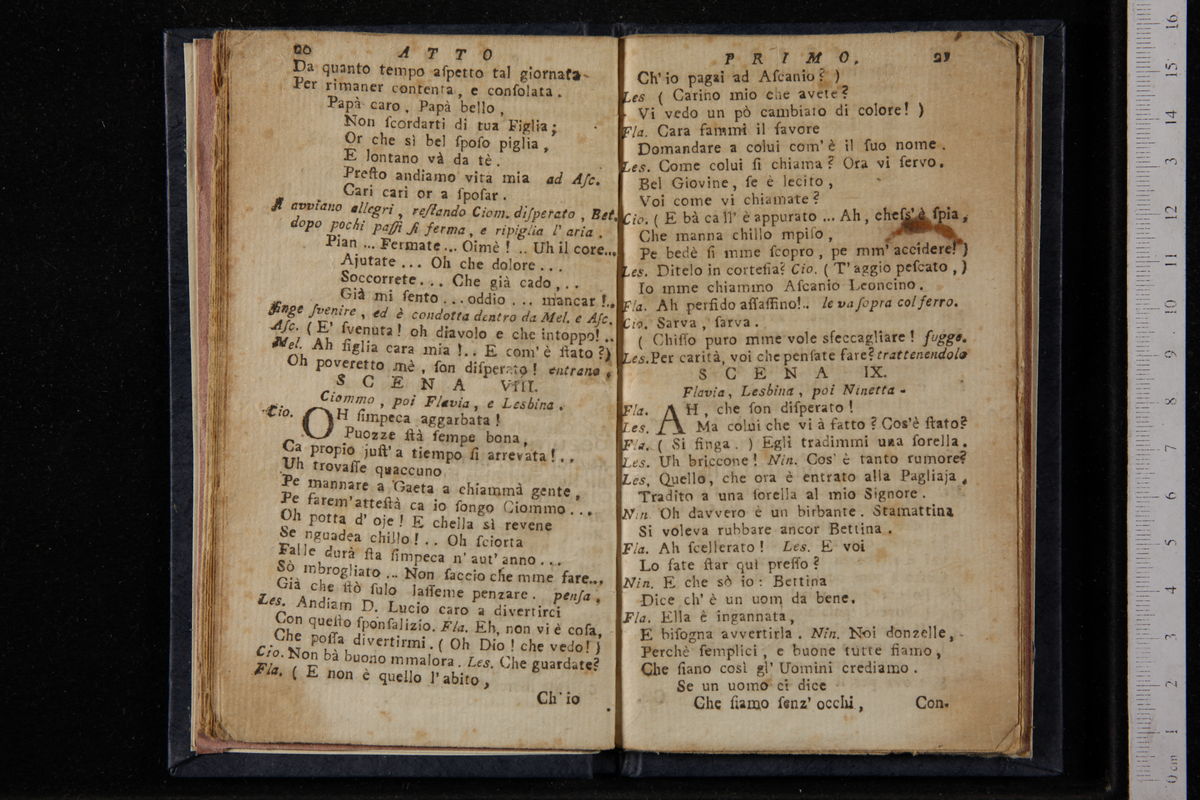 20 ATTO
Da quanto tempo aſpetto tal giornata
Per rimaner contenta, e conſolata.
Papà caro, Papà bello,
Non ſcordarti di tua Figlia;
Or che sì bel ſpoſo piglia,
E lontano và da tè.
Preſto andiamo vita mia ad Aſc.
Cari cari or a ſpoſar.
Si avviano allegri, reſtando Ciom. diſperato, Bet.
dopo pochi paſſi ſi ferma, e ripiglia l'aria.
Pian ... Fermate ... Oimè! .. Uh il core...
Ajutate ... Oh che dolore ...
Soccorrete... Che già cado,..
Già mi ſento ... oddio ... mancar!..
finge ſvenire, ed è condotta dentro da Mel. e Aſc.
Aſc. (E' ſvenuta! oh diavolo e che intoppo!..
Mel. Ah figlia cara mia!.. E com' è ſtato?)
Oh poveretto mè, ſon diſperato! entrano.
SCENA VIII.
Ciommo, poi Flavia, e Lesbina.
Cio. OH ſimpeca aggarbata!
Puozze ſtà ſempe bona,
Ca propio juſt'a tiempo ſi arrevata!..
Uh trovaſſe quaccuno
Pe mannare a Gaeta a chiammà gente,
Pe farem'atteſtà ca io ſongo Ciommo...
Oh potta d'oje! E chella sì revene
Se nguadea chillo!.. Oh ſciorta
Falle durà ſta ſimpeca n'aut'anno...
Sò mbrogliato ... Non ſaccio che mme fare...
Già che ſtò ſulo laſſeme penzare. penſa.
Les. Andiam D. Lucio caro a divertirci
Con queſto ſponſalizio. Fla. Eh, non vi è coſa,
Che poſſa divertirmi. (Oh Dio! che vedo!)
Cio. Non bà buono mmalora. Les. Che guardate?
Fla. (E non è quello l'abito,
Ch'io
PRIMO. 21
Ch'io pagai ad Aſcanio?)
Les (Carino mio che avete?
Vi vedo un pò cambiato di colore!)
Fla. Cara fammi il favore
Domandare a colui com'è il ſuo nome.
Les. Come colui ſi chiama? Ora vi ſervo.
Bel Giovine, ſe è lecito,
Voi come vi chiamate?
Cio. (E bà ca ll' è appurato ... Ah, cheſs'è ſpia,
Che manna chillo mpiſo,
Pe bedè ſi mme ſcopro, pe mm'accidere!)
Les. Ditelo in corteſia? Cio. (T'aggio peſcato,)
Io mme chiammo Aſcanio Leoncino.
Fla. Ah perfido aſſaſſino!.. le va ſopra col ferro.
Cio. Sarva, ſarva.
(Chiſſo puro mme vole sfeccagliare! fugge.
Les. Per carità, voi che penſate fare? trattenendola
SCENA IX.
Flavia, Lesbina, poi Ninetta.
Fla. AH, che ſon diſperato!
Les. Ma colui che vi à fatto? Cos'è ſtato?
Fla. (Si finga.) Egli tradimmi una ſorella.
Les. Uh briccone! Nin. Cos'è tanto rumore?
Les. Quello, che ora è entrato alla Pagliaja,
Tradito a una ſorella al mio Signore.
Nin. Oh davvero è un birbante. Stamattina
Si voleva rubbare ancor Bettina.
Fla. Ah ſcellerato! Les. E voi
Lo fate ſtar quì preſſo?
Nin. E che sò io: Bettina
Dice ch'è un uom da bene.
Fla. Ella è ingannata,
E biſogna avvertirla. Nin. Noi donzelle,
Perchè ſemplici, e buone tutte ſiamo,
Che ſiano così gl'Uomini crediamo.
Se un uomo ci dice
Che ſiamo ſenz'occhi, Con.
16
15
14
13
12
11
10
9
8
7
6
5
4
3
2
1
0 cm